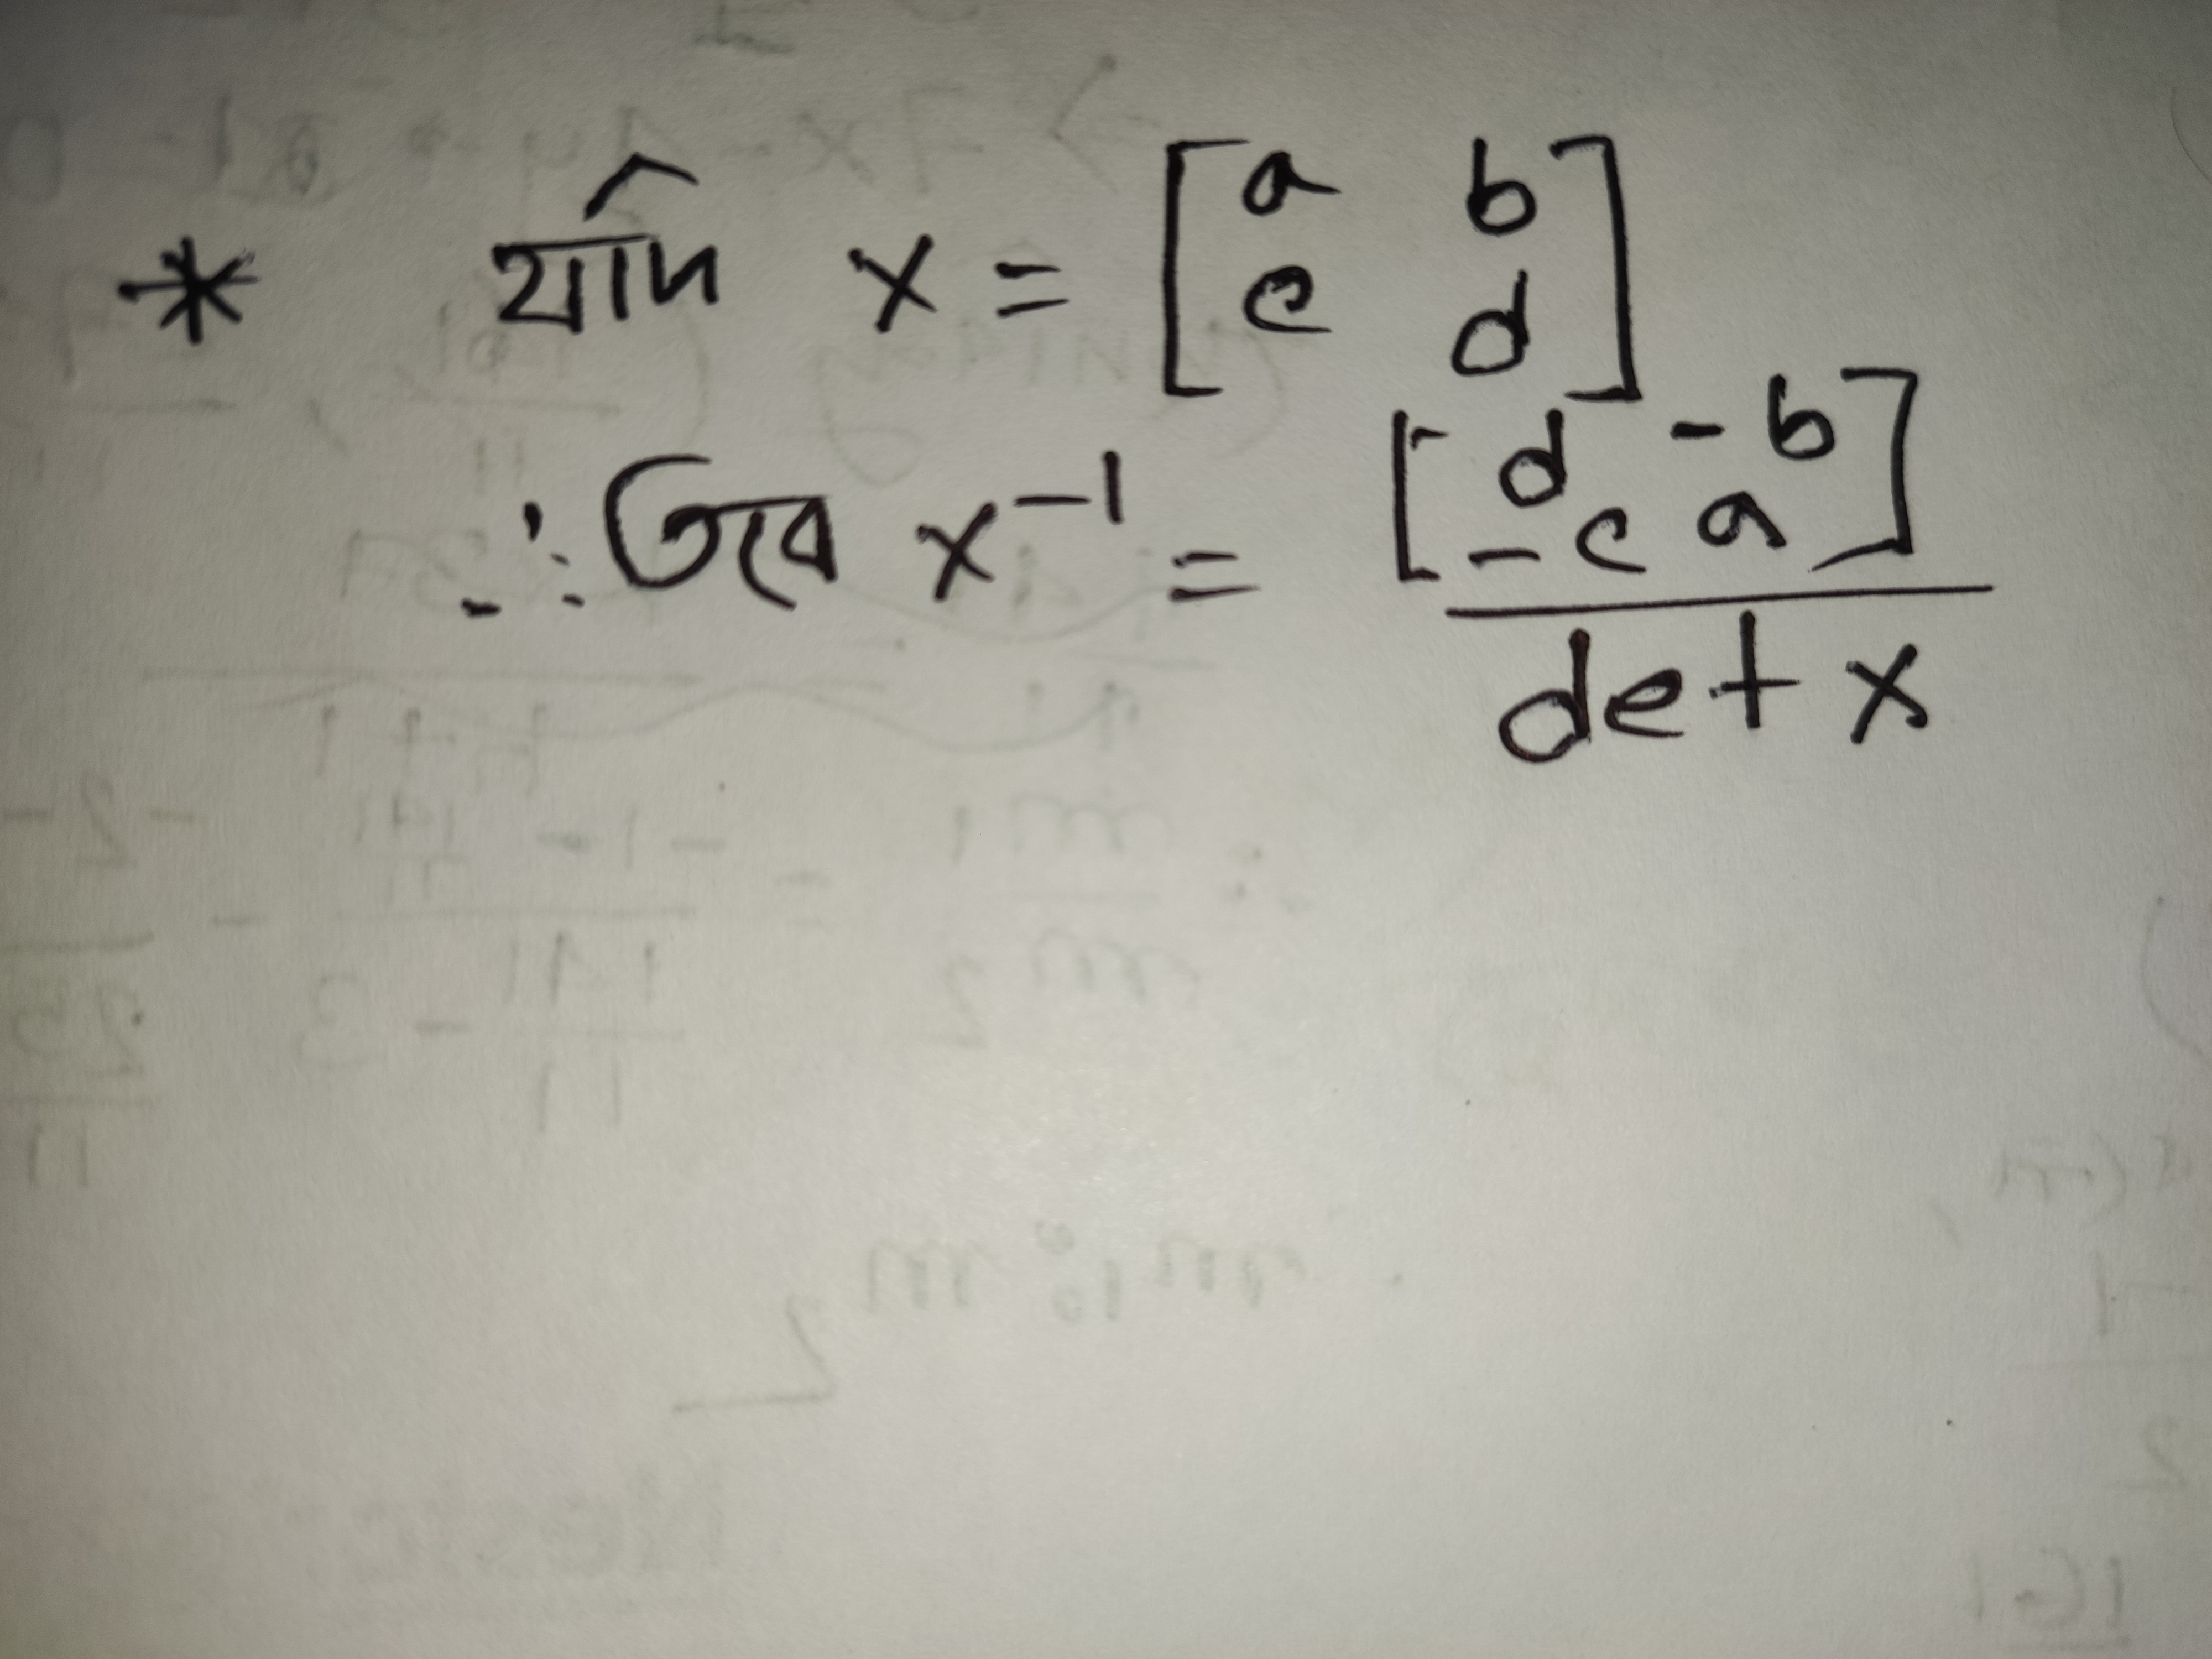 * যদি x = [a b
c d]
∴ তবে x⁻¹ = [d -b
-c a]
det x